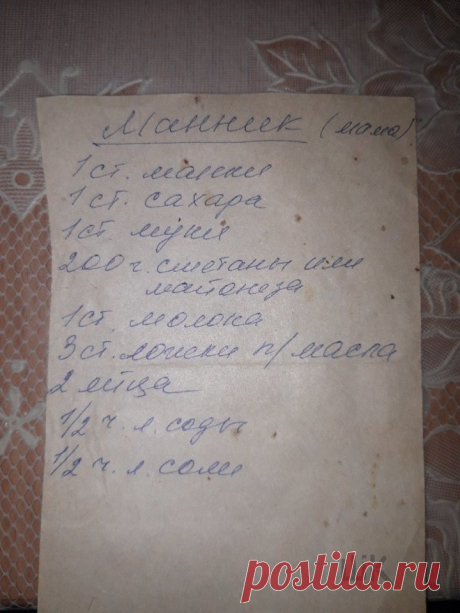 Манник (мама)
1 ст. манки
1 ст. сахара
1 ст. муки
200 г. сметаны или
майонеза
1 ст. молока
3 ст. ложки п/масла
2 яйца
1/2 ч. л. соды
1/2 ч. л. соли
postila.ru